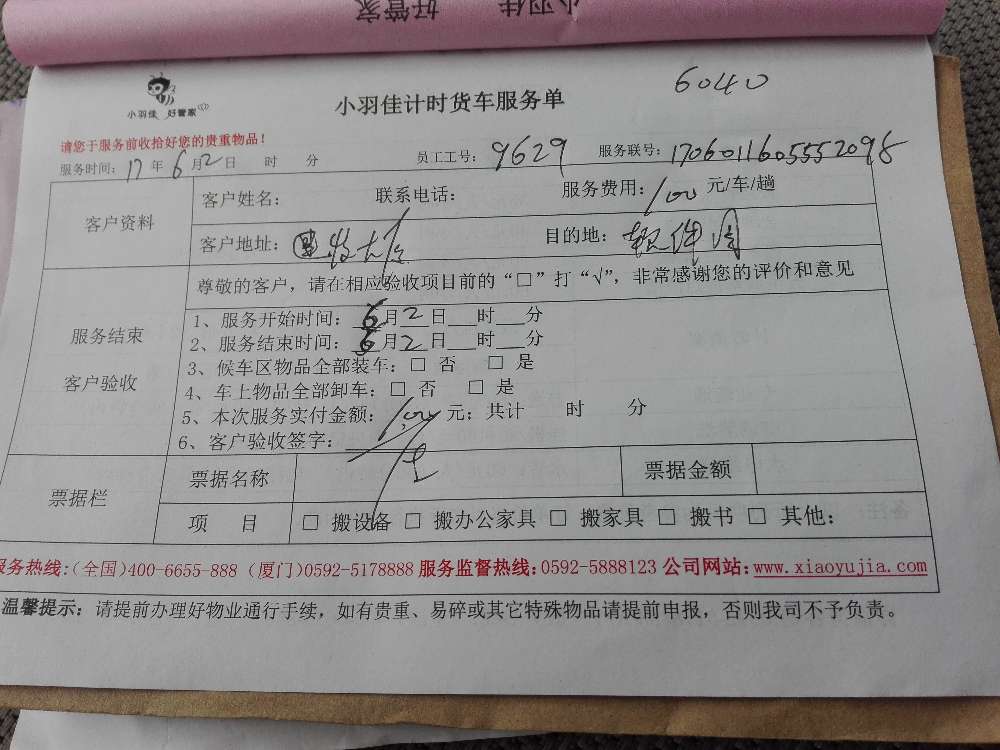 小羽佳 好管家
6040
小羽佳 好管家
小羽佳计时货车服务单
请您于服务前收拾好您的贵重物品！
服务时间：17年6月2日 时 分 员工工号：9629 服务联号：1706011605552098
客户资料 客户姓名： 联系电话： 服务费用：100元/车/趟
客户地址： 目的地：软件园
尊敬的客户，请在相应验收项目前的“□”打“√”，非常感谢您的评价和意见
服务结束
客户验收
1、服务开始时间：6月2日___时___分
2、服务结束时间：6月2日___时___分
3、候车区物品全部装车：□ 否 □ 是
4、车上物品全部卸车：□ 否 □ 是
5、本次服务实付金额：100元；共计 时 分
6、客户验收签字：
票据栏 票据名称 票据金额
项 目 □ 搬设备 □ 搬办公家具 □ 搬家具 □ 搬书 □ 其他：
服务热线：（全国）400-6655-888（厦门）0592-5178888 服务监督热线：0592-5888123 公司网站：www.xiaoyujia.com
温馨提示：请提前办理好物业通行手续，如有贵重、易碎或其它特殊物品请提前申报，否则我司不予负责。